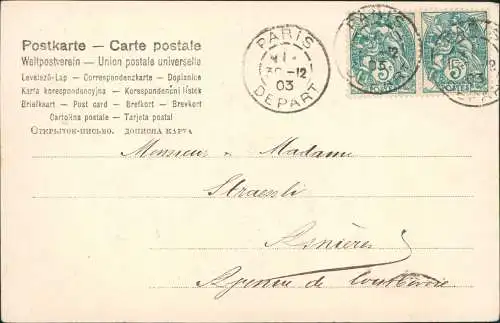 Postkarte — Carte postale
Weltpostverein — Union postale universelle
Levelező-Lap — Correspondenzkarte — Dopisnice
Karta korespondencyjna — Korespondenční lístek
Briefkaart — Post card — Brefkort — Brevkort
Cartolina postale — Tarjeta postal
Открытое-письмо. дописна карта
PARIS
30 -12
03
DEPART
PARIS
03
5
5
Monsieur Madame
Asnières
Agence de